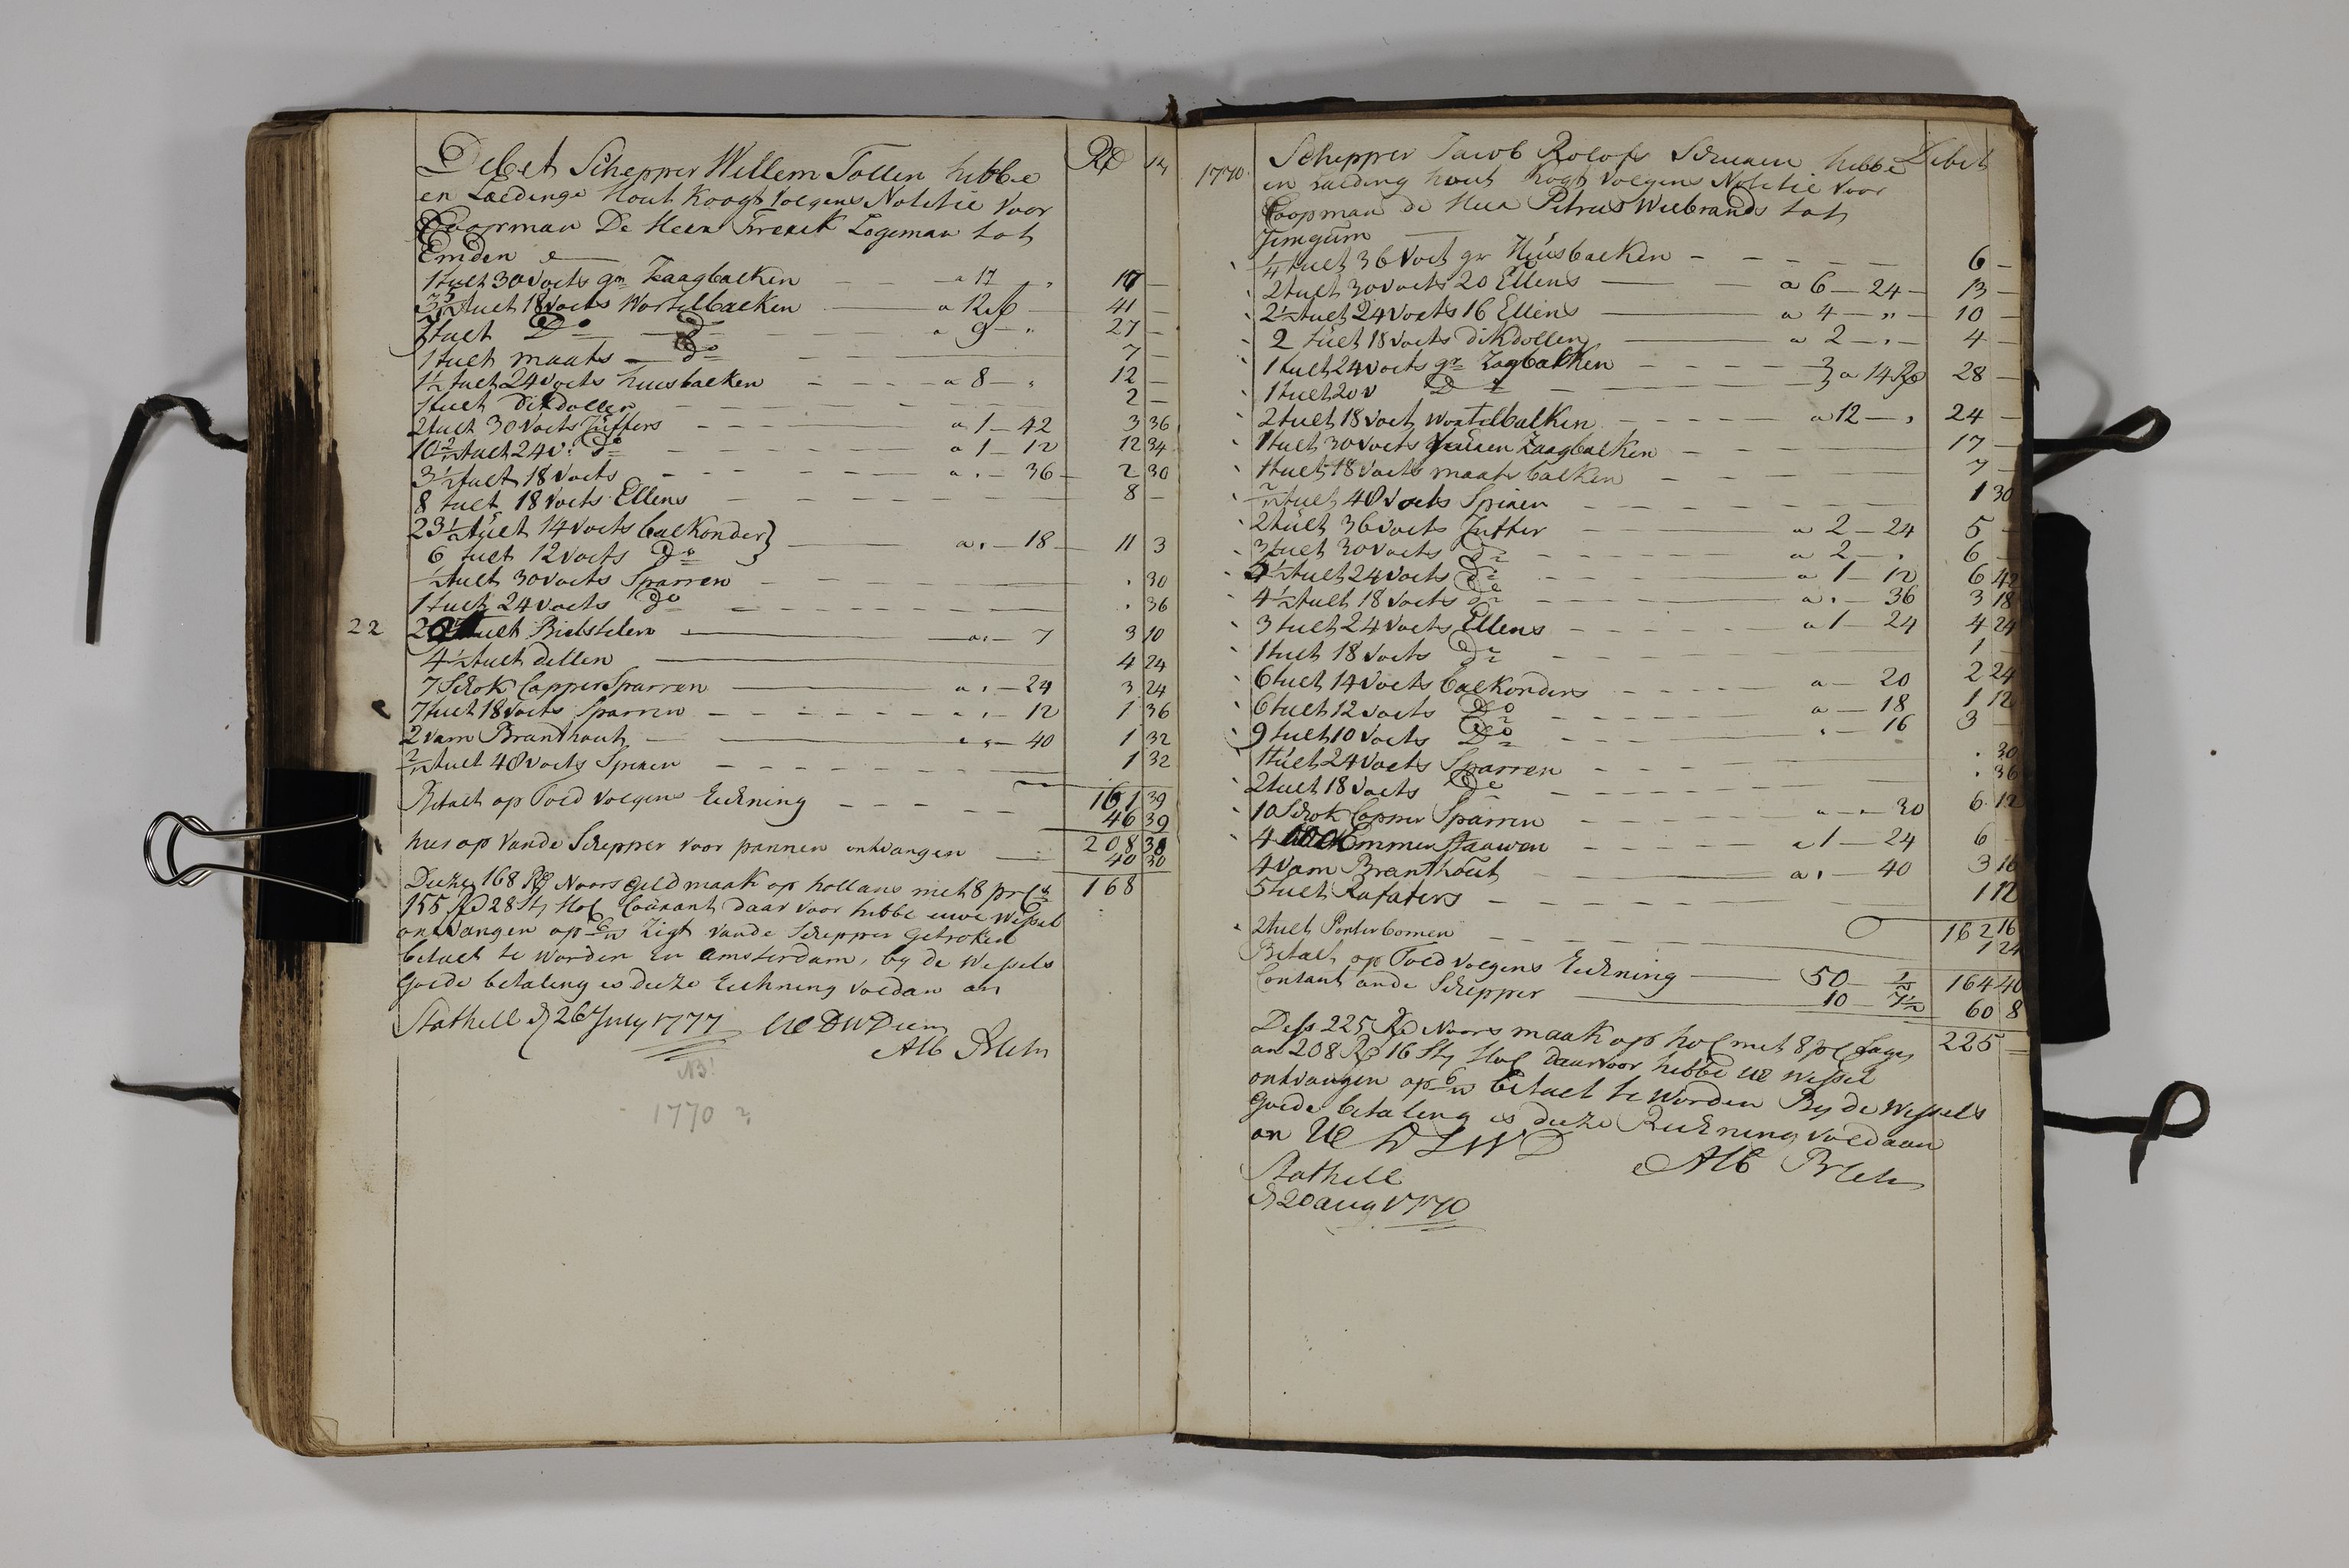 Debet Schepper Willem Tollen hebbe Rd St
en Laedinge Hout Koogt volgens Notitie voor
Coopman De Heer Frerick Logeman tot
Emden
1 tult 30 voets gr Zaagbalken - - a 17 - 17 -
tult 18 voets Wortelbalken a 12 41 -
3 tult Do Do a 9 - 27 -
1 tult maats - Do 7 -
1½ tult 24 voets huusbalken - - - a 8 - 12 -
1 tult Dikdollen 2 -
2 tult 30 voets Juffers - - - a 1 - 42 3 36
10 tult 24 v: Do a 1 - 12 12 34
3½ tult 18 voets - - - a . - 36 - 2 30
8 tult 18 voets Ellens 8 -
23 tult 14 voets balkonder}
6 tult 12 voets Do } a . - 18 - 11 3
½ tult 30 voets Sparren - . 30
1 tult 24 voets Do . 36
22 tult Bielstelen a . - 7 3 10
4½ tult dellen 4 24
7 Schok Capper Sparren a . - 24 3 24
7 tult 18 voets Sparren - - - a . - 12 1 36
2 vam Branthout - . - 40 1 32
tult 40 voets Spieren - - - 1 32
Betaelt op Toed volgens Reekning - - - 161 39
46 39
hier op vande Schepper voor pannen ontvangen 208 30
40 30
Deeze 168 Rd Noors geld maak op hollans met 8 prCt 168
155 Rd 28 St Hol Courant daar voor hebbe uwe Wissel
ontvangen op Zigt vande Schepper Getroken
betaelt te worden in Amsterdam, by de Wissels
Goede betaling is deeze Reekning voldaan an
Stathell d 26 July 1777 UE DWDien
Alb
NB!
1770 ?
1770 Schepper Jacob Rolofs hebbe Debet
in Laeding hout Kogt volgens Notitie voor
Coopman de Heer Petrus Weebrands tot
Jemgum
¼ tult 36 Voet gr Huusbaeken - - - 6 -
2 tult 30 voets 20 Ellens a 6 - 24 - 13 -
2½ tult 24 voets 16 Ellens a 4 - " - 10 -
2 tult 18 voets dikdollen a 2 - . - 4 -
1 tult 24 voets gr Zagbalken - - - }
1 tult 20 v Do } a 14 Rd 28 -
2 tult 18 voet Wortelbalken - - - a 12 - , 24 -
1 tult 30 voets Zaagbalken 17 -
1 tult 18 voets maats balken - - - 7 -
tult 40 voets Spieren 1 30
2 tult 36 voets Juffer a 2 - 24 5 -
3 tult 30 voets Do a 2 - . 6 -
4½ tult 24 voets Do a 1 - 12 6 42
4½ tult 18 voets Do a . - 36 3 18
3 tult 24 voets Ellens a 1 - 24 4 24
1 tult 18 voets Do 1 -
6 tult 14 voets balkonders a - 20 2 24
6 tult 12 voets Do a - 18 1 12
9 tult 10 voets Do . - 16 3 -
1 tult 24 voets Sparren . 30
2 tult 18 voets Do . 36
10 Schok Capper Sparren 30 6 12
4 Emmer Staauwen a 1 - 24 6 -
4 vam Branthout a . - 40 3 16
5 tult Rafaters 1 12
2 tult Ponterbomen 162 16
1 24
Betaelt op Toed volgens Reekning 50 - ½ 164 40
Contant ande Schepper 10 7½ 60 8
Dess 225 Rd Noors maak op hol met 8 pC 225 -
an 208 Rd 16 St Hol daarvoor hebbe UE wissel
ontvangen op betaelt te worden By de Wissels
Goede betaling is deeze Reekning voldaan
an UE D D W D
Stathell Alb
d 20 aug 1770